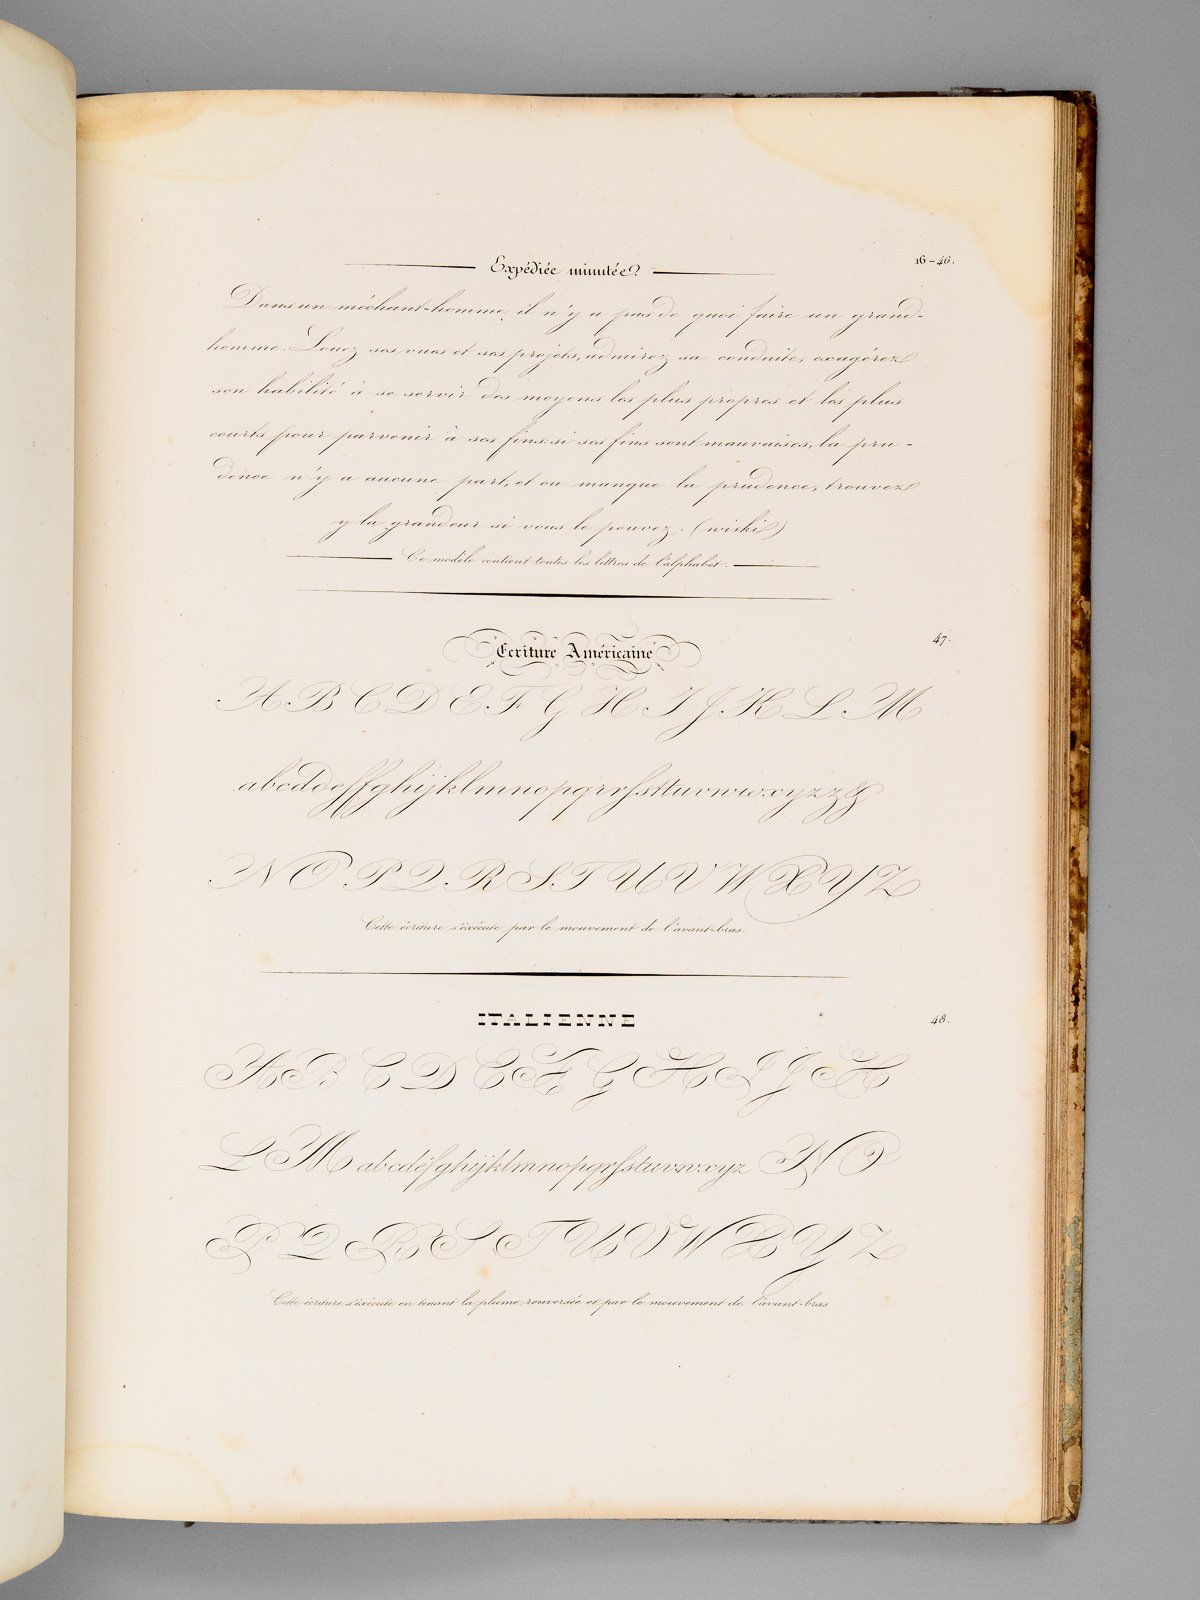 Expédiée minutée.
16-46.
Dans un méchant-homme, il n'y a pas de quoi faire un grand-
homme. Louez ses vues et ses projets, admirez sa conduite, exagérez
son habilité à se servir des moyens les plus propres et les plus
courts pour parvenir à ses fins: si ses fins sont mauvaises, la pru-
dence n'y a aucune part, et ou manque la prudence, trouvez
y la grandeur si vous le pouvez. (wiski)
Ce modèle contient toutes les lettres de l'alphabet.
Ecriture Américaine
47.
A B C D E F G H I J K L M
abcddefffghijklmnopqrrfsttuvwwxyzz&
N O P Q R S T U V W X Y Z
Cette écriture s'éxécute par le mouvement de l'avant-bras.
ITALIENNE
48.
A B C D E F G H I J K
L M abcdefghijklmnopqrfstuvwxyz N O
P Q R S T U V W X Y Z
Cette écriture s'éxécute en tenant la plume renversée et par le mouvement de l'avant-bras